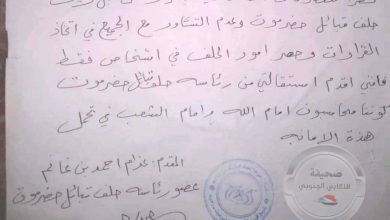 حلف قبائل حضرموت وعدم التشاور مع الجميع في اتخاذ
القرارات وحصر امور الحلف في اشخاص فقط
فانني اقدم استقالتي من رئاسه حلف قبائل حضرموت
كوننا محاسبون امام الله وامام الشعب في تحمل
هذة الامانه
المقدم: عزام احمد بن غانم
عضو رئاسه حلف قبائل حضرموت
صحيفة
النقابي الجنوبي